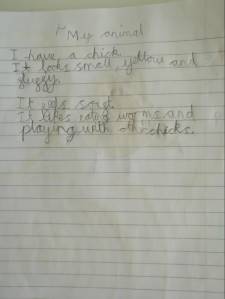 My animal
I have a chick.
It looks small, yellow and
fluggy.
It eats
It likes eating worms and
playing with other chicks.